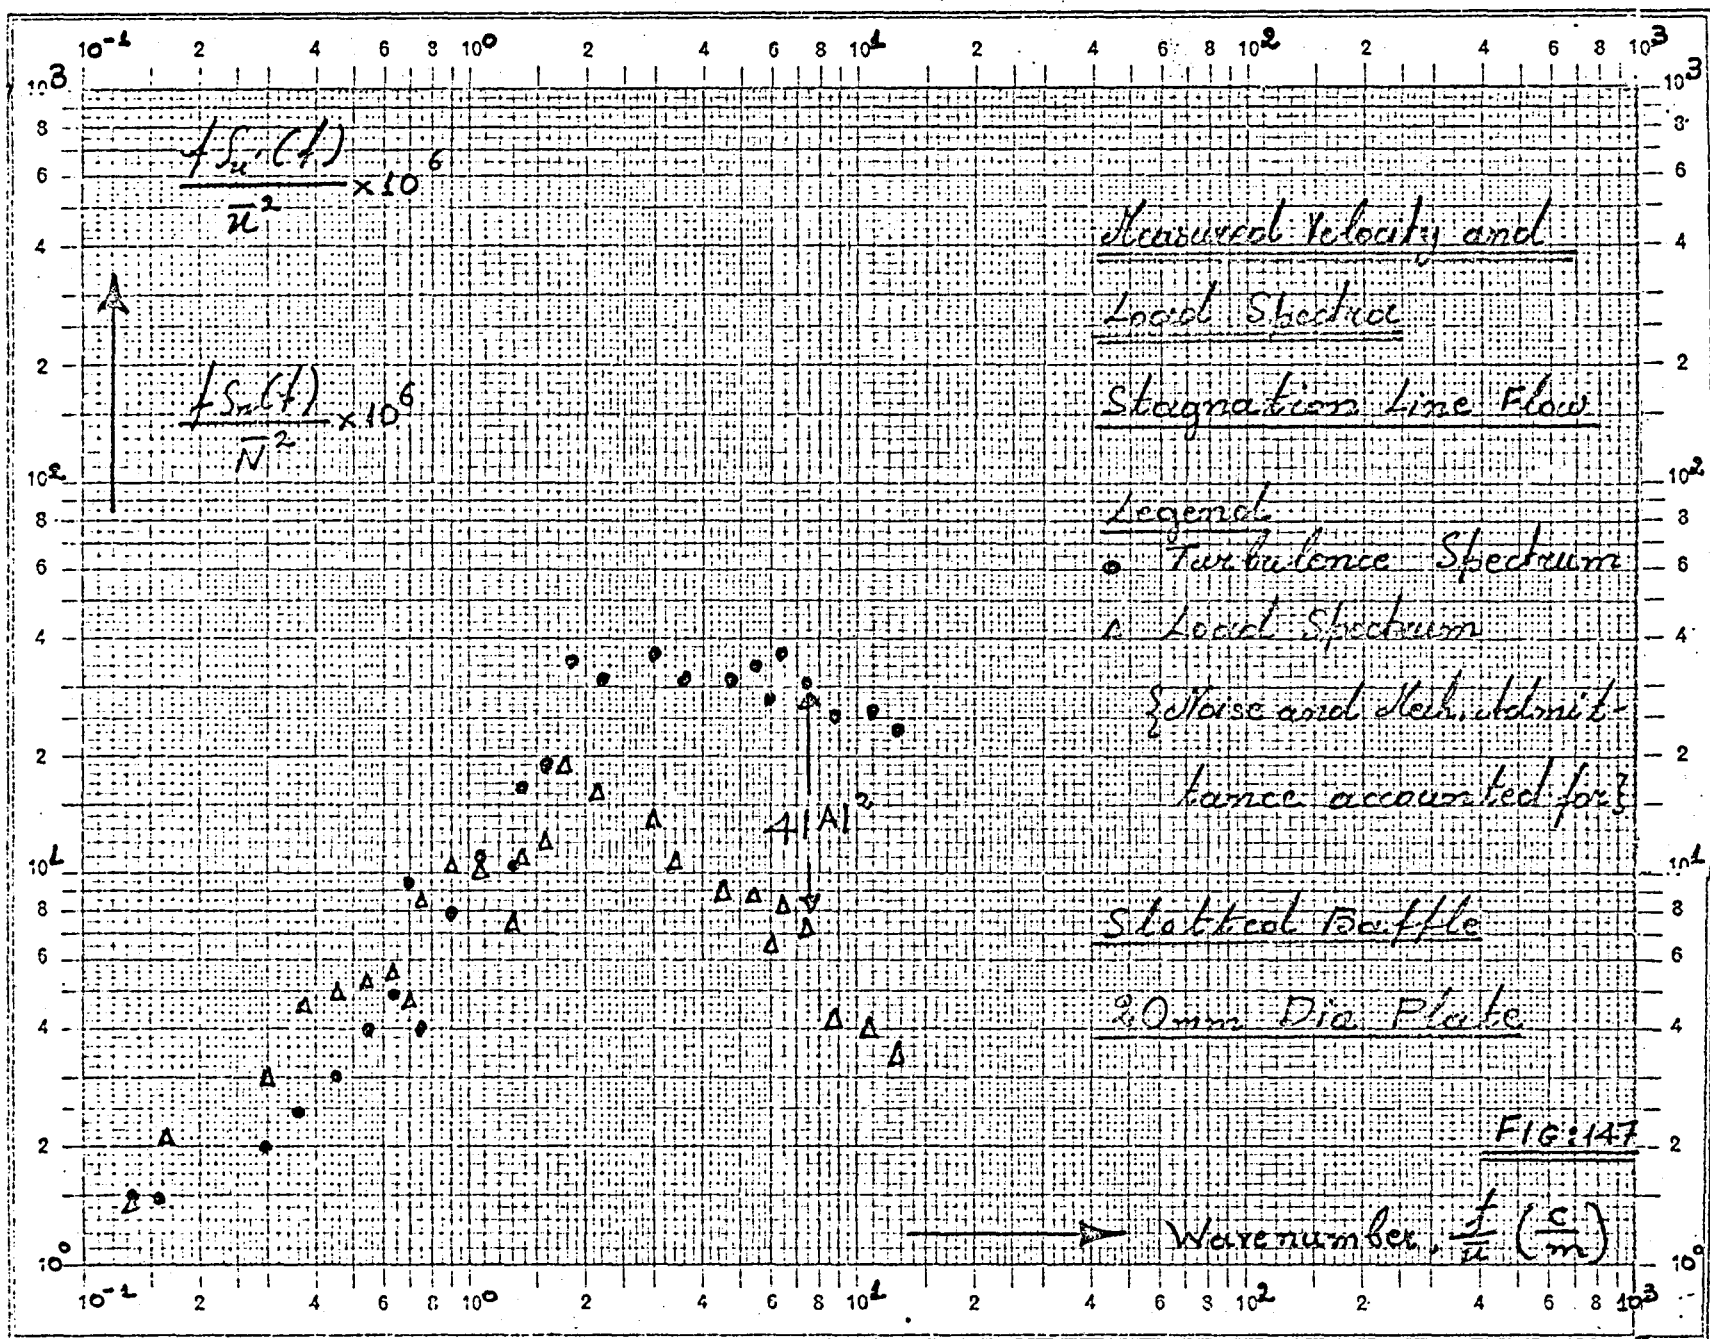 10⁻¹ 2 4 6 8 10⁰ 2 4 6 8 10¹ 2 4 6 8 10² 2 4 6 8 10³
10³ 8 6 4 2 10² 8 6 4 2 10¹ 8 6 4 2 10⁰
f Su'(f) / ū² ×10⁶
f Sn(f) / N̄² ×10⁶
Measured Velocity and
Load Spectra
Stagnation Line Flow
Legend
Turbulence Spectrum
Δ Load Spectrum
{Noise and Mech. Admit-
tance accounted for}
4|A|²
Slotted Baffle
20mm Dia Plate
FIG:147
Wavenumber, f/ū (c/m)
10³ 8 6 4 2 10² 8 6 4 2 10¹ 8 6 4 2 10⁰
10⁻¹ 2 4 6 8 10⁰ 2 4 6 8 10¹ 2 4 6 8 10² 2 4 6 8 10³